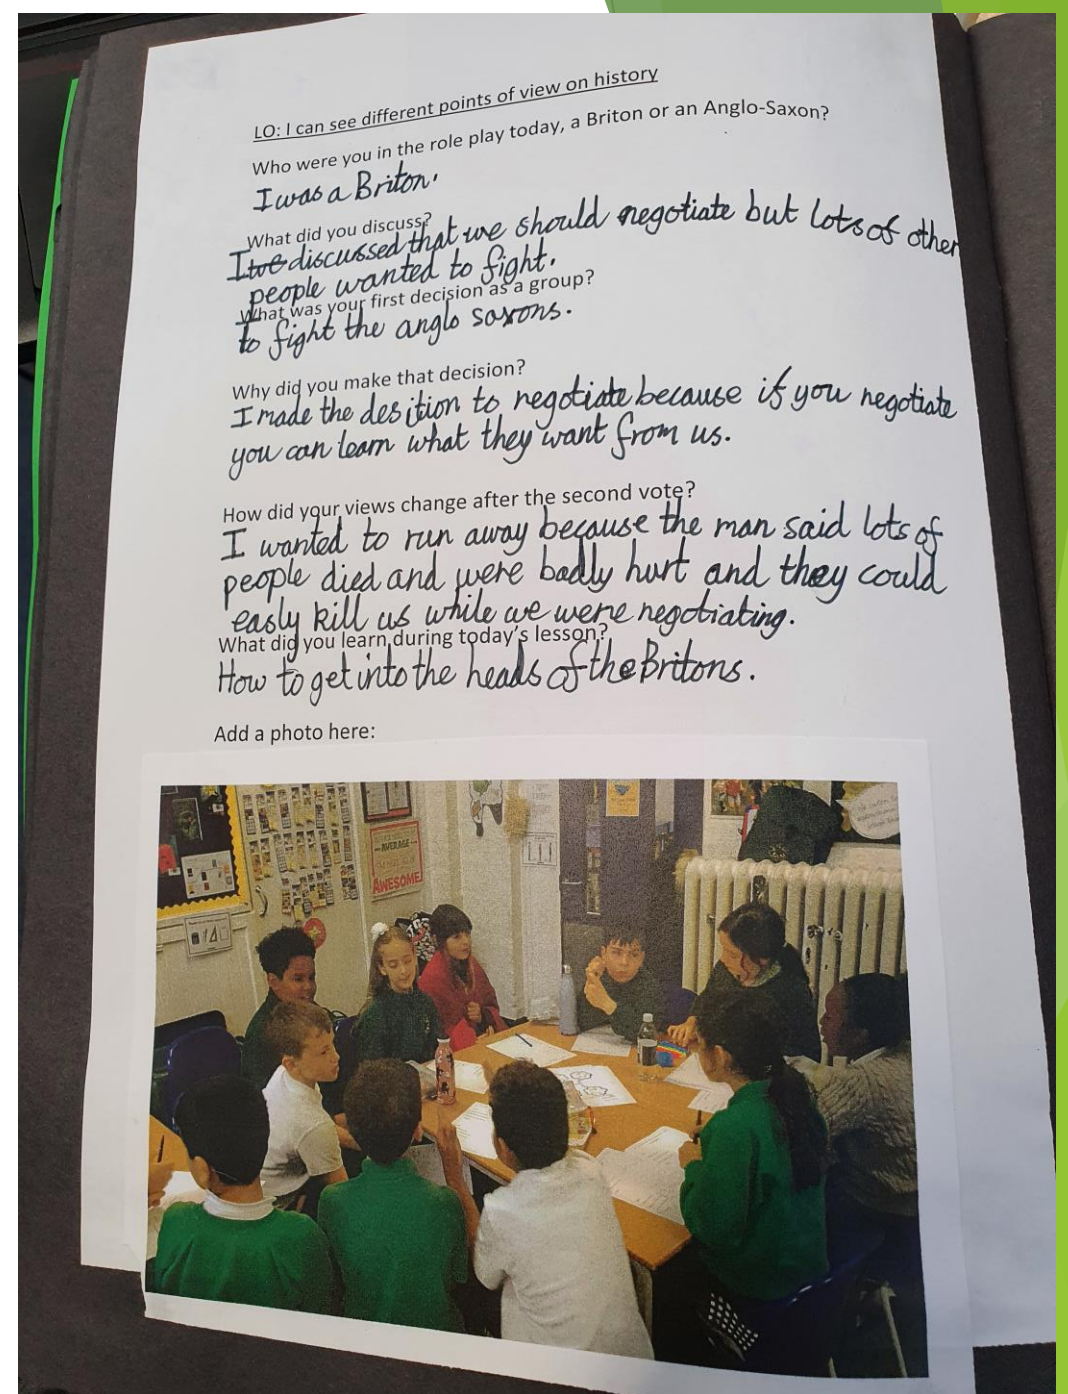 LO: I can see different points of view on history
Who were you in the role play today, a Briton or an Anglo-Saxon?
I was a Briton.
What did you discuss?
I we discussed that we should negotiate but lots of other
people wanted to fight.
What was your first decision as a group?
to fight the anglo saxons.
Why did you make that decision?
I made the desition to negotiate because if you negotiate
you can learn what they want from us.
How did your views change after the second vote?
I wanted to run away because the man said lots of
people died and were badly hurt and they could
easly kill us while we were negotiating.
What did you learn during today's lesson?
How to get into the heads of the Britons.
Add a photo here:
AVERAGE
AWESOME